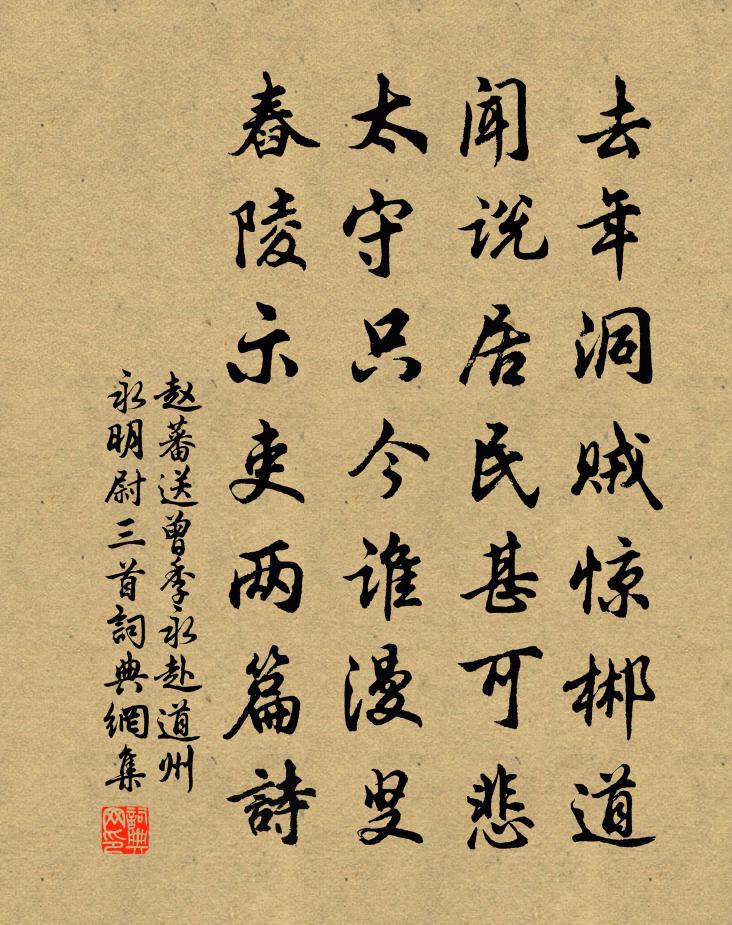 去年洞贼惊郴道
闻说居民甚可悲
太守只今谁漫叟
舂陵示吏两篇詩
赵蕃送曾季永赴道州
永明尉三首詞典網集
詞典网印